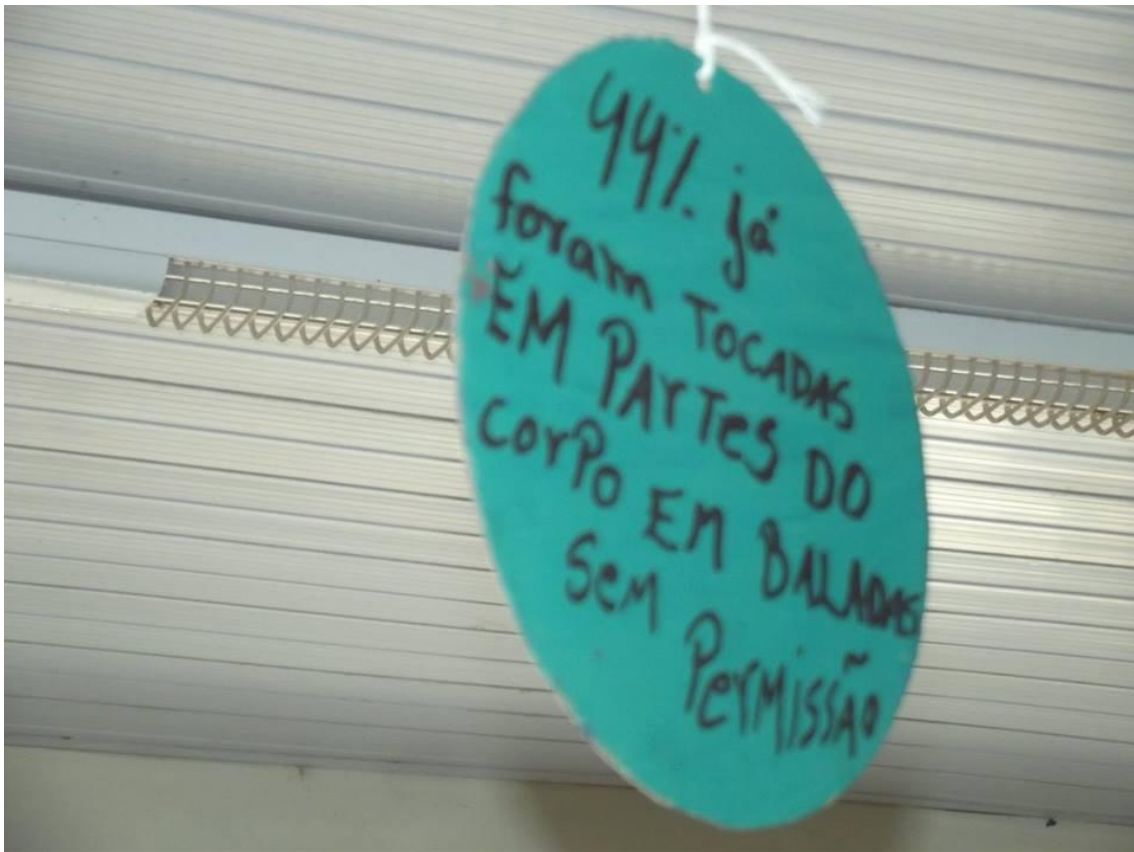 44% já
foram TOCADAS
EM PARTES DO
CORPO EM BALADAS
SEM PERMISSÃO